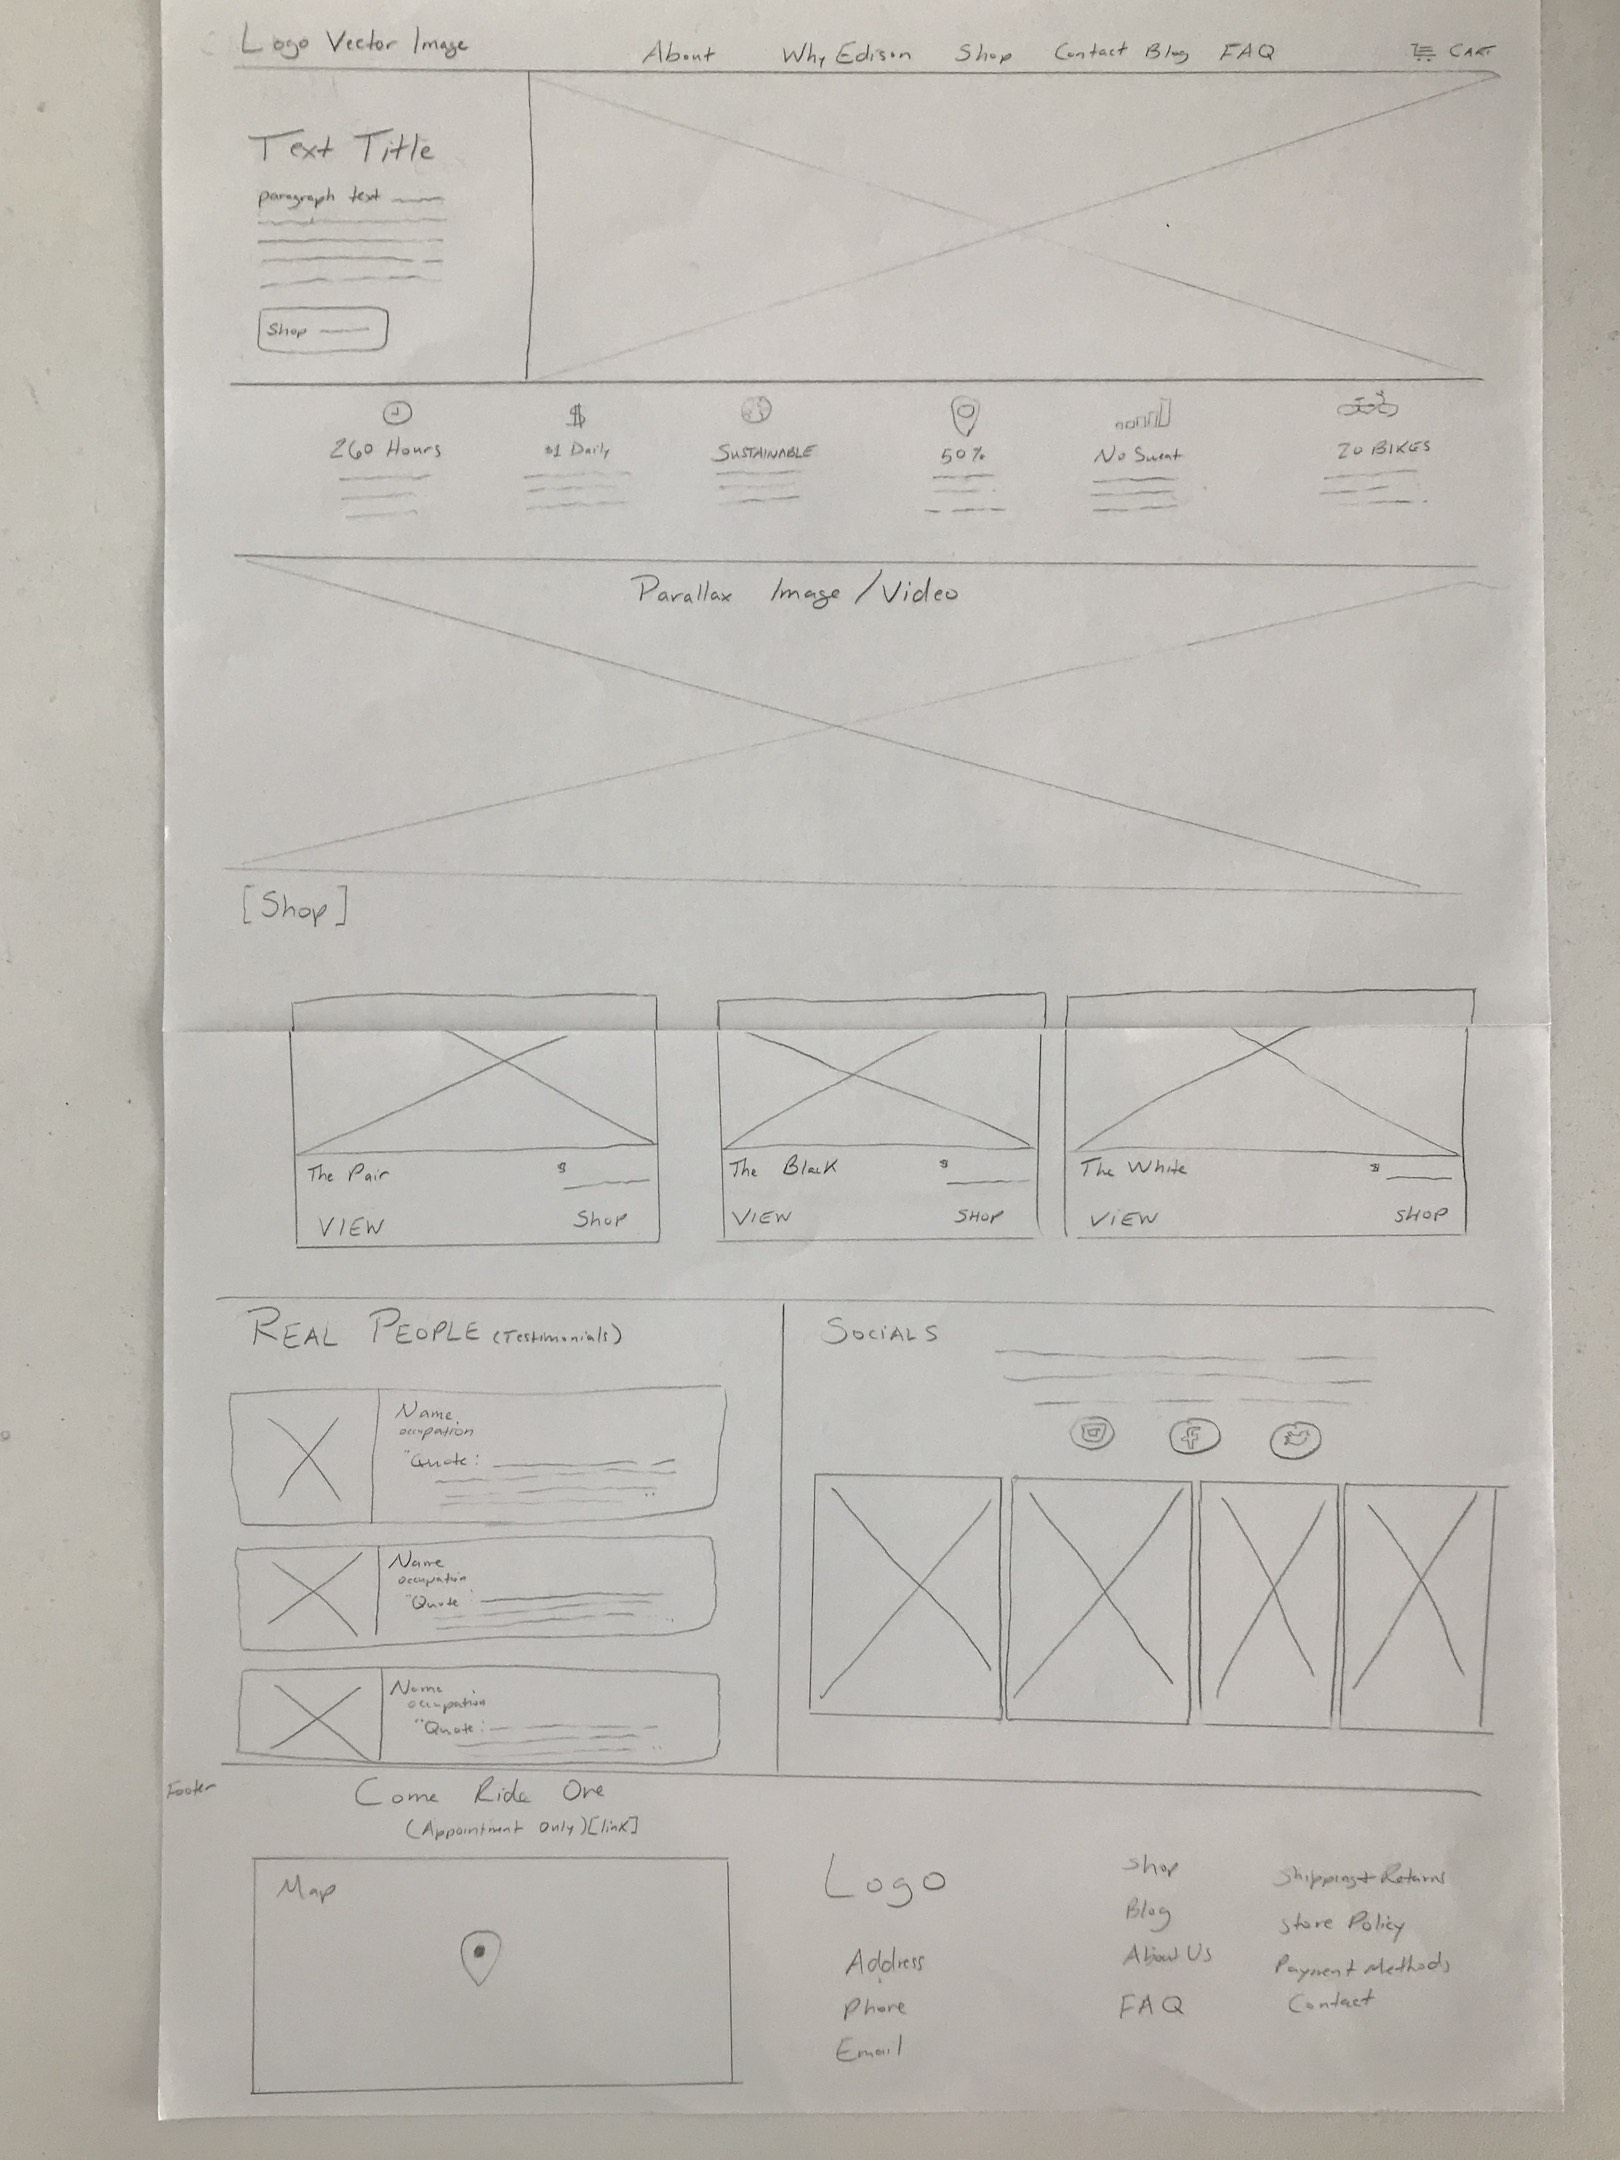 Logo Vector Image
About Why Edison Shop Contact Blog FAQ CART
Text Title
paragraph text
Shop
260 Hours $1 Daily SUSTAINABLE 50% No Sweat 20 BIKES
Parallax Image/Video
[Shop]
The Pair $
VIEW Shop
The Black $
VIEW SHOP
The White $
VIEW SHOP
REAL PEOPLE (Testimonials)
Name
occupation
"Quote:
Name
occupation
"Quote
Name
occupation
"Quote:
SOCIALS
Footer
Come Ride One
(Appointment Only)[link]
Map
Logo
Address
Phone
Email
Shop
Blog
About Us
FAQ
Shipping + Returns
Store Policy
Payment Methods
Contact